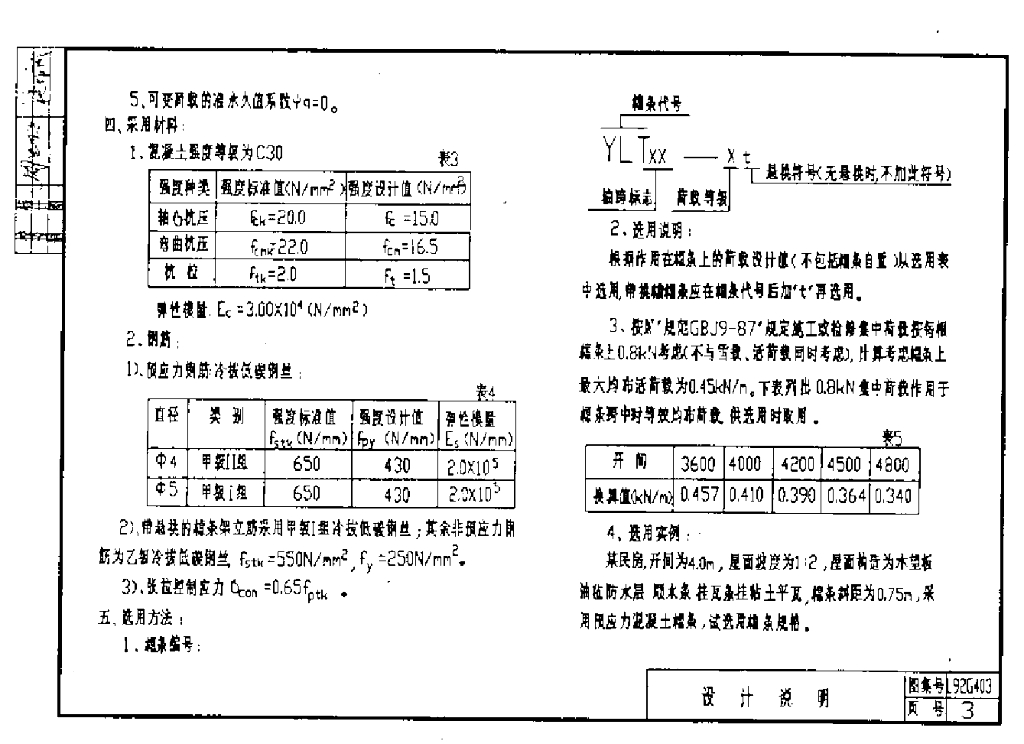 5、可变荷载的准永久值系数ψq=0。
四、采用材料：
1、混凝土强度等级为C30
表3
强度种类 强度标准值(N/mm²) 强度设计值(N/mm²)
轴心抗压 fck=20.0 fc=15.0
弯曲抗压 fcmk=22.0 fcm=16.5
抗拉 ftk=2.0 ft=1.5
弹性模量 Ec=3.00X10⁴(N/mm²)
2、钢筋：
1)、预应力钢筋冷拔低碳钢丝：
表4
直径 类别 强度标准值 fstk(N/mm) 强度设计值 fpy(N/mm) 弹性模量 Es(N/mm)
Φ4 甲级II组 650 430 2.0X10⁵
Φ5 甲级I组 650 430 2.0X10⁵
2)、带悬挑的檩条架立筋采用甲级I组冷拔低碳钢丝；其余非预应力钢
筋为乙级冷拔低碳钢丝 fstk=550N/mm²，fy=250N/mm²。
3)、张拉控制应力 σcon=0.65fptk。
五、选用方法：
1、檩条编号：
檩条代号
YLTXX — X t
悬挑符号(无悬挑时,不加此符号)
轴跨标志 荷载等级
2、选用说明：
根据作用在檩条上的荷载设计值(不包括檩条自重)从选用表
中选用,带挑檐檩条应在檩条代号后加"t"再选用。
3、按照"规范GBJ9-87"规定施工或检修集中荷载按每根
檩条上0.8kN考虑(不与雪载、活荷载同时考虑),计算考虑檩条上
最大均布活荷载为0.45kN/m。下表列出0.8kN集中荷载作用于
檩条跨中时等效均布荷载,供选用时取用。
表5
开间 3600 4000 4200 4500 4800
换算值(kN/m) 0.457 0.410 0.390 0.364 0.340
4、选用实例：
某民房,开间为4.0m，屋面坡度为1:2，屋面构造为木望板
油毡防水层 顺水条 挂瓦条挂粘土平瓦,檩条斜距为0.75m,采
用预应力混凝土檩条,试选用檩条规格。
设计说明
图集号 L92G403
页号 3